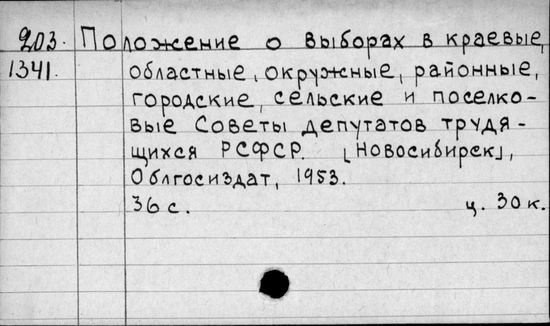 203. Положение о выборах в краевые,
1341. областные, окружные, районные,
городские, сельские и поселко-
вые Советы депутатов трудя-
щихся РСФСР. [Новосибирск],
Облгосиздат, 1953.
36 с. ц. 30 к.